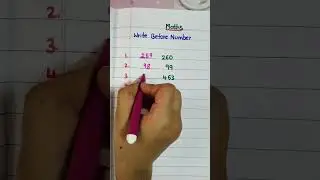 Maths
Write Before Number
1. 259 260
2. 98 99
3. 453
2.
3.